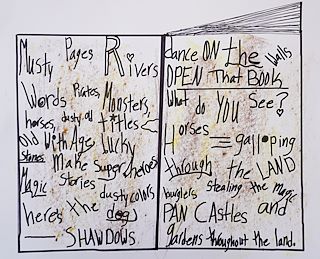 Musty Pages Rivers
Words Pirates, Monsters,
horses, dusty old titles
Old With Age Lucky
Stones make Super heroes
Magic Stories dusty colors
here's the dog
SHAWDOWS
Dance ON the Walls
OPEN That BOOK
What do YOU See?
Horses galloping
through the LAND
burglers Stealing the magic
PAN CAstles and
gardens throughout the land.